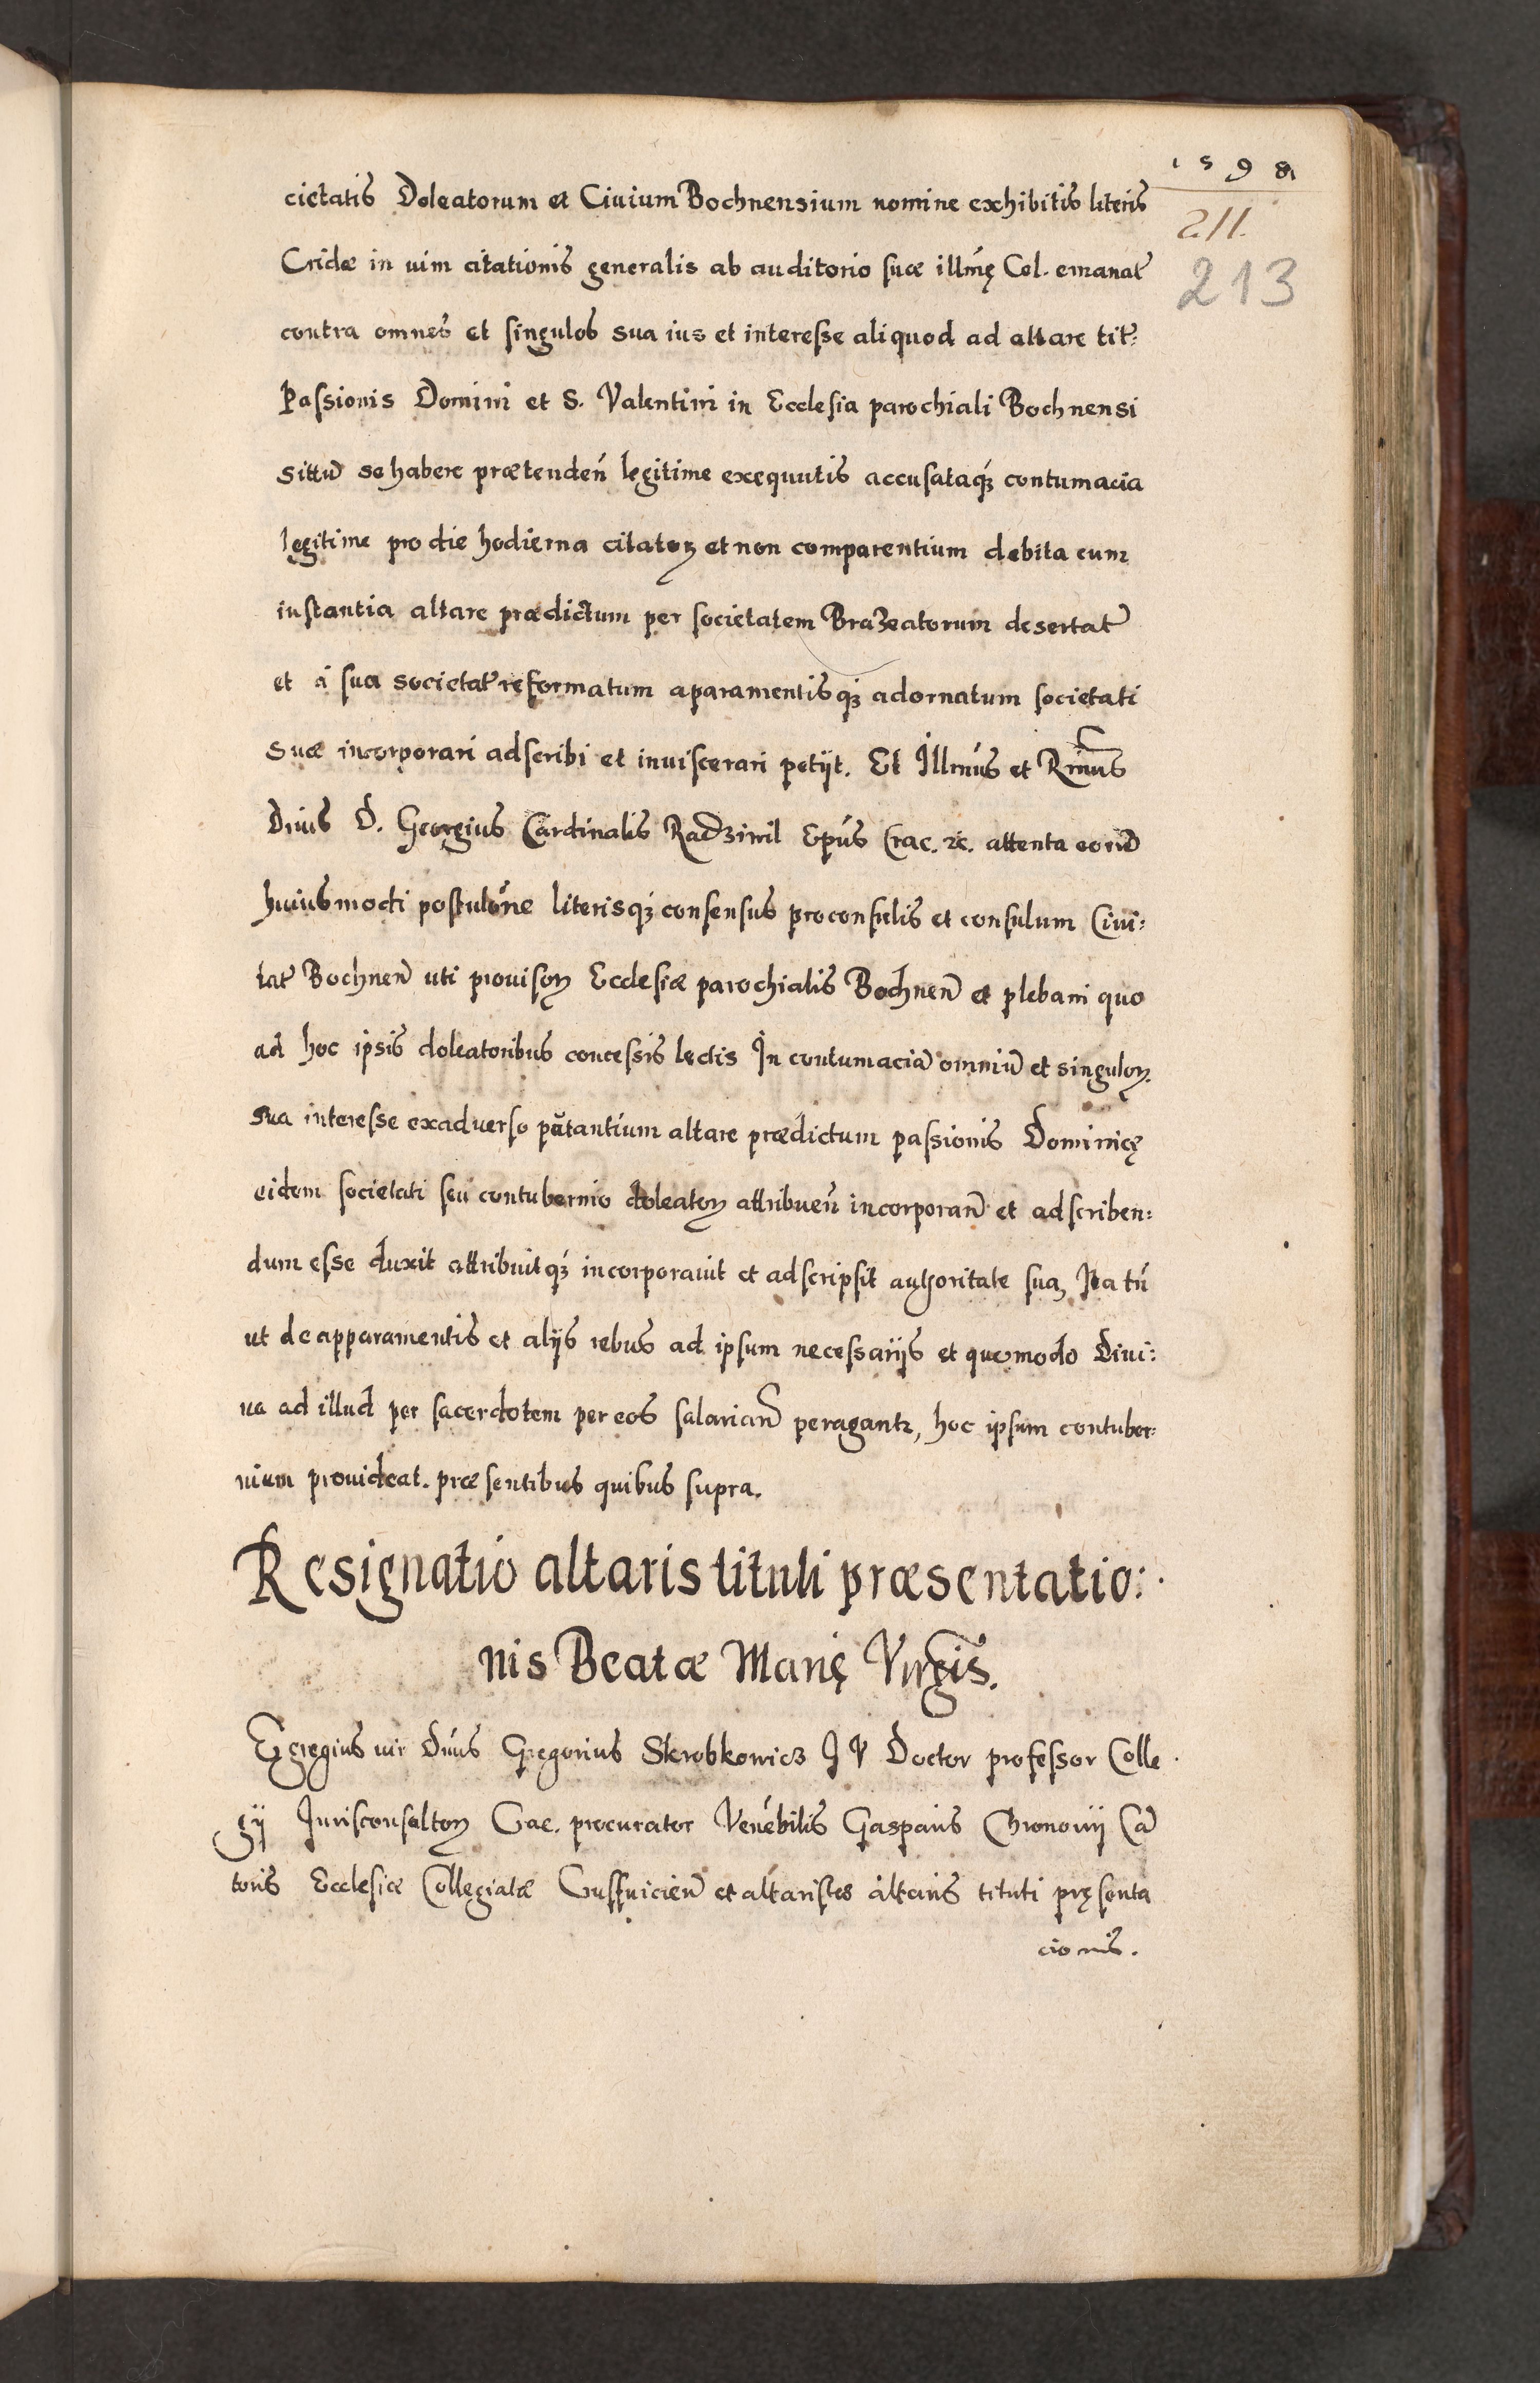 1598
211.
213
cietatis Doleatorum et Ciuium Bochnensium nomine exhibitis literis
Cridæ in uim citationis generalis ab auditorio suæ illmę Cel. emanat
contra omnes et singulos sua ius et interesse aliquod ad altare tit:
Passionis Domini et S. Valentini in Ecclesia parochiali Bochnensi
sittū se habere prætendeñ legitime exequutis accusataqȝ contumacia
legitime pro die hodierna citatoꝝ et non comparentium debita cum
instantia altare prædictum per societatem Braʒeatorum desertat
et á sua societat reformatum aparamentisqȝ adornatum societati
suæ incorporari adscribi et inuiscerari petijt. Et Illmus et Rmus
Dnus D. Georgius Cardinalis Radziwil Epus Crac. ꝛc. attenta eorū
huiusmodi postulõne literisqȝ consensus proconsulis et consulum Ciui:
tat Bochneñ uti prouisoꝝ Ecclesiæ parochialis Bochneñ et plebani quo
ad hoc ipsis doleatoribus concessis lectis In contumaciā omniū et singuloꝝ
sua interesse exaduerso putantium altare prædictum passionis Dominicę
eidem societati seu contubernio doleatoꝝ attribueñ incorporañ et adscriben:
dum esse duxit attribuitqȝ incorporauit et adscripsit authoritate sua, Ita tñ
ut de apparamentis et alijs rebus ad ipsum necessarijs et quomodo Diui:
na ad illud per sacerdotem per eos salariañ peragantr, hoc ipsum contuber:
nium prouideat. præsentibus quibus supra.
Resignatio altaris tituli præsentatio:
nis Beatæ Marię Virgis.
Egregius uir Dnus Gregorius Skrobkowicz I V Doctor professor Colle
gij Iurisconsultoꝝ Crac. procurator Venebilis Gasparis Chronowij Cā
toris Ecclesiæ Collegiatæ Curzeloien et altaristes altaris tituli pręsenta
cionis.